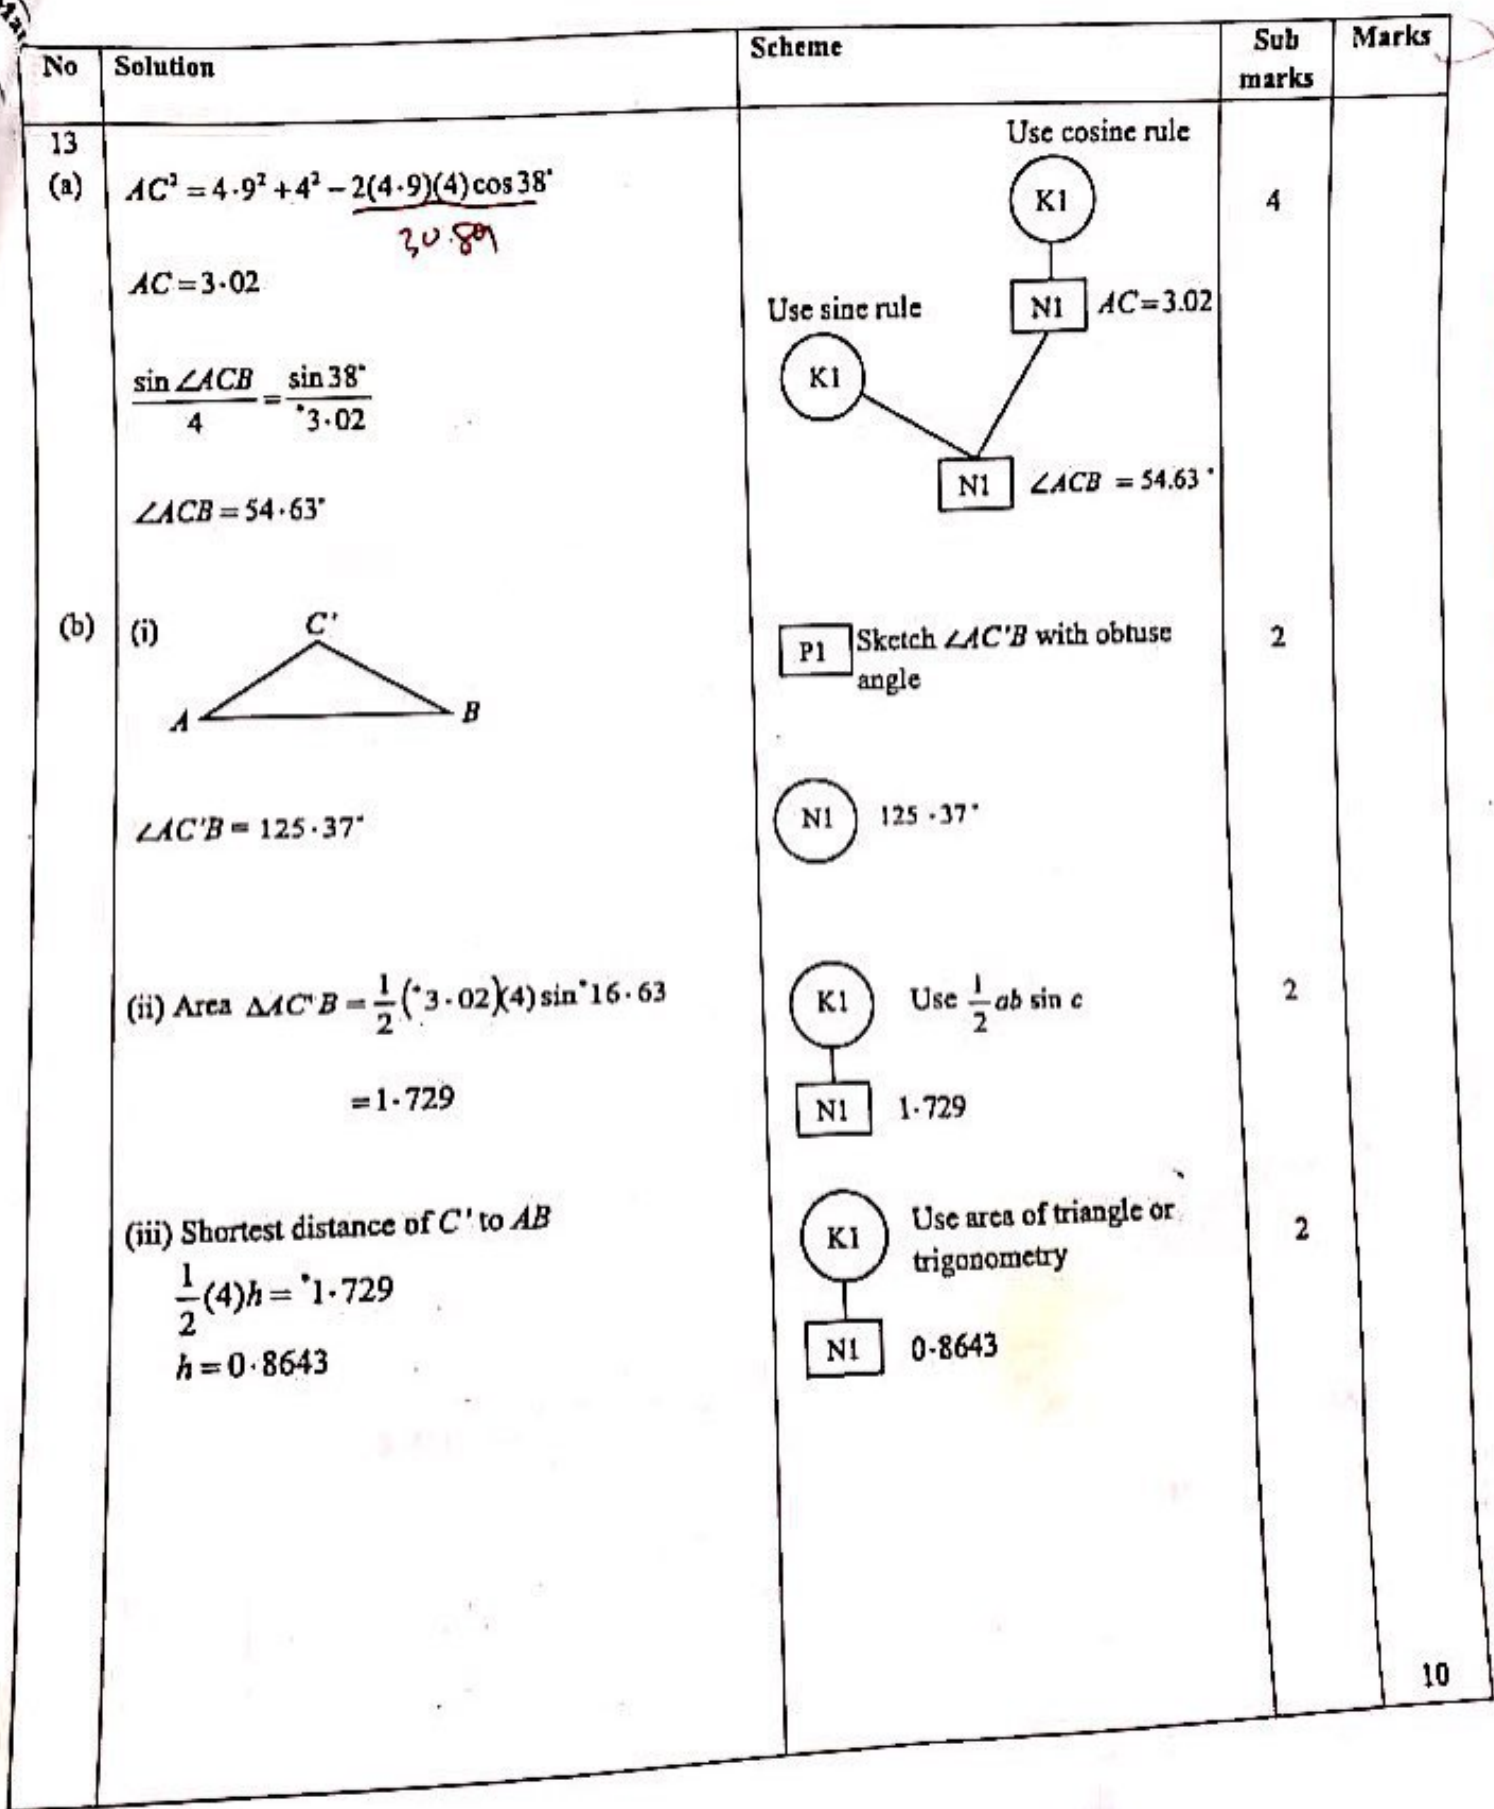 No Solution Scheme Sub marks Marks
13
(a) AC² = 4·9² + 4² − 2(4·9)(4) cos 38°
30.89
AC = 3·02
sin ∠ACB / 4 = sin 38° / *3·02
∠ACB = 54·63°
Use cosine rule
K1
N1 AC = 3.02
Use sine rule
K1
N1 ∠ACB = 54.63°
4
(b) (i)
C'
A B
∠AC'B = 125·37°
P1 Sketch ∠AC'B with obtuse
angle
2
N1 125·37°
(ii) Area ΔAC'B = 1/2 (*3·02)(4) sin *16·63
= 1·729
K1 Use 1/2 ab sin c
2
N1 1·729
(iii) Shortest distance of C' to AB
1/2 (4)h = *1·729
h = 0·8643
K1 Use area of triangle or
trigonometry
2
N1 0·8643
10